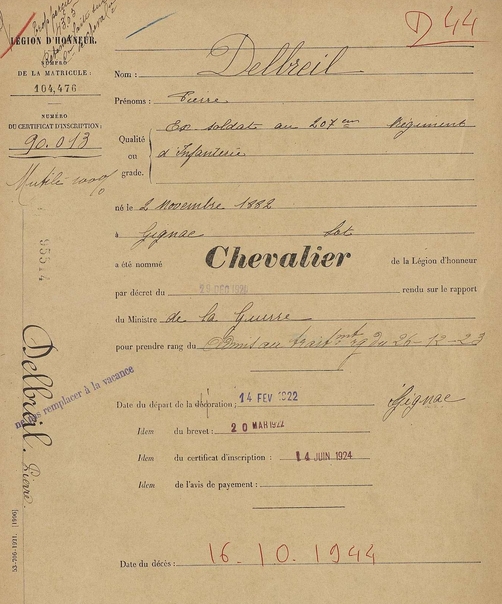 LÉGION D'HONNEUR.
D 44
NUMÉRO
DE LA MATRICULE:
104,476
NUMÉRO
DU CERTIFICAT D'INSCRIPTION:
90.013
Mutilé 100%
Nom: Delbreil
Prénoms: Pierre
Qualité ou grade. Ex soldat au 207em Régiment
d'Infanterie
né le 2 Novembre 1882
à Gignac Lot
a été nommé Chevalier de la Légion d'honneur
par décret du 29 DEC 1920 rendu sur le rapport
du Ministre de la Guerre
pour prendre rang du Admis au trait mt du 24-12-23
Date du départ de la décoration, 14 FEV 1922 Gignac
Idem du brevet: 20 MAR 1922
Idem du certificat d'inscription: 14 JUIN 1924
Idem de l'avis de payement:
Date du décès: 16.10.1944
Delbreil. Pierre.
remplacer à la vacance